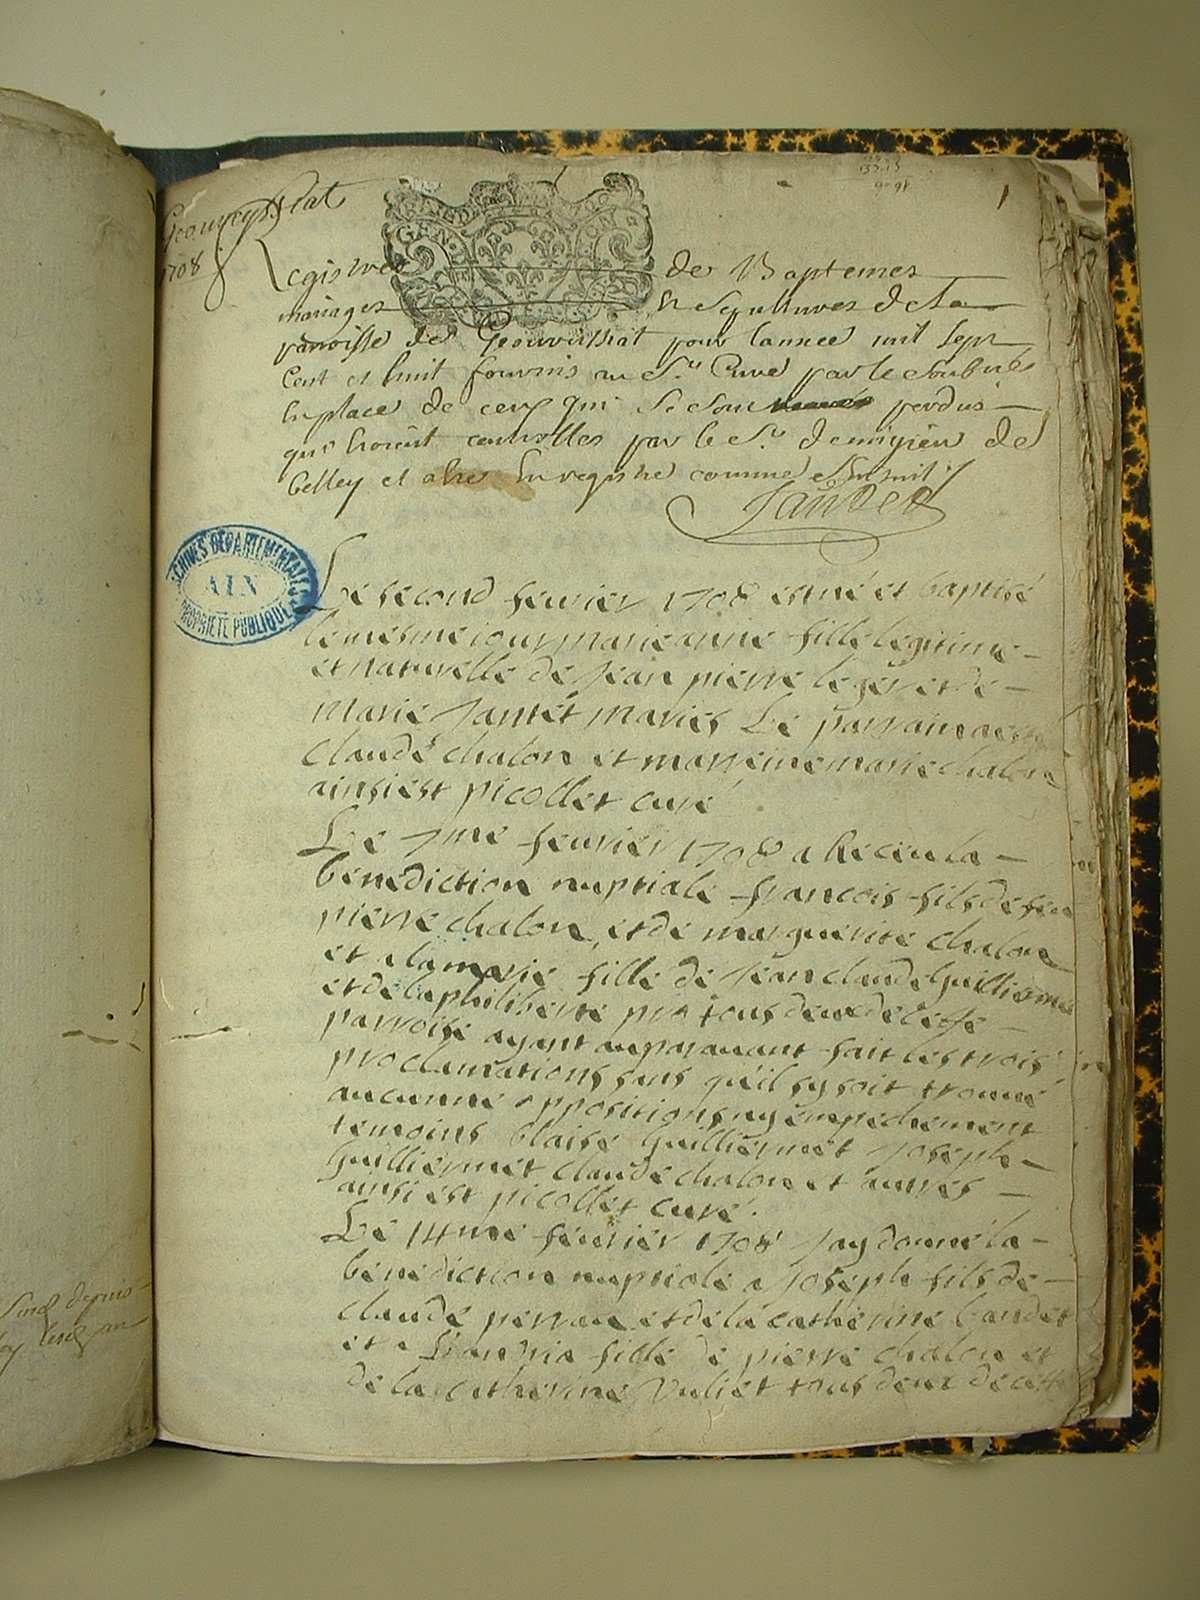 Geoureyssiat
1708
1
Registres de Baptemes
mariages Et Sepultures de la
parroisse de Geouvressiat pour lannee mil sept
Cent et huit fournis au Sr Curé par le soubné
En place de ceux qui se sont perdus
qui Etoient controlles par le Sr demigieu de
belley et a Enregistré comme sensuit
Jantet
ARCHIVES DEPARTEMENTALES
AIN
PROPRIETE PUBLIQUE
Le second feurier 1708 est né et baptisé
le mesme iour marie anne fille legitime
et naturelle de Jean pierre leger et de
marie Jantét mariés Le parrain
claude chalon et marreine marie chalon
ainsi est picollet curé
Le 7me feurier 1708 a Receu la
bénédiction nuptiale françois fils de feu
pierre chalon et de marguerite chalon
et a la marie fille de Jean claude Guilliermet
et de la philiberte tous deux de cette
parroise ayant auparauant fait les trois
proclamations sans qu'il sy soit trouué
aucunne oppositions ny empechement
temoins blaise Guilliermet Joseph
Guilliermet claude chalon et autres
ainsi est picollet curé
Le 14me feurier 1708 Jay donné la
bénédiction nuptiale a Joseph fils de
claude perrau et de la catherine
et a fille de pierre chalon et
de la catherine vuliet tous deux de cette